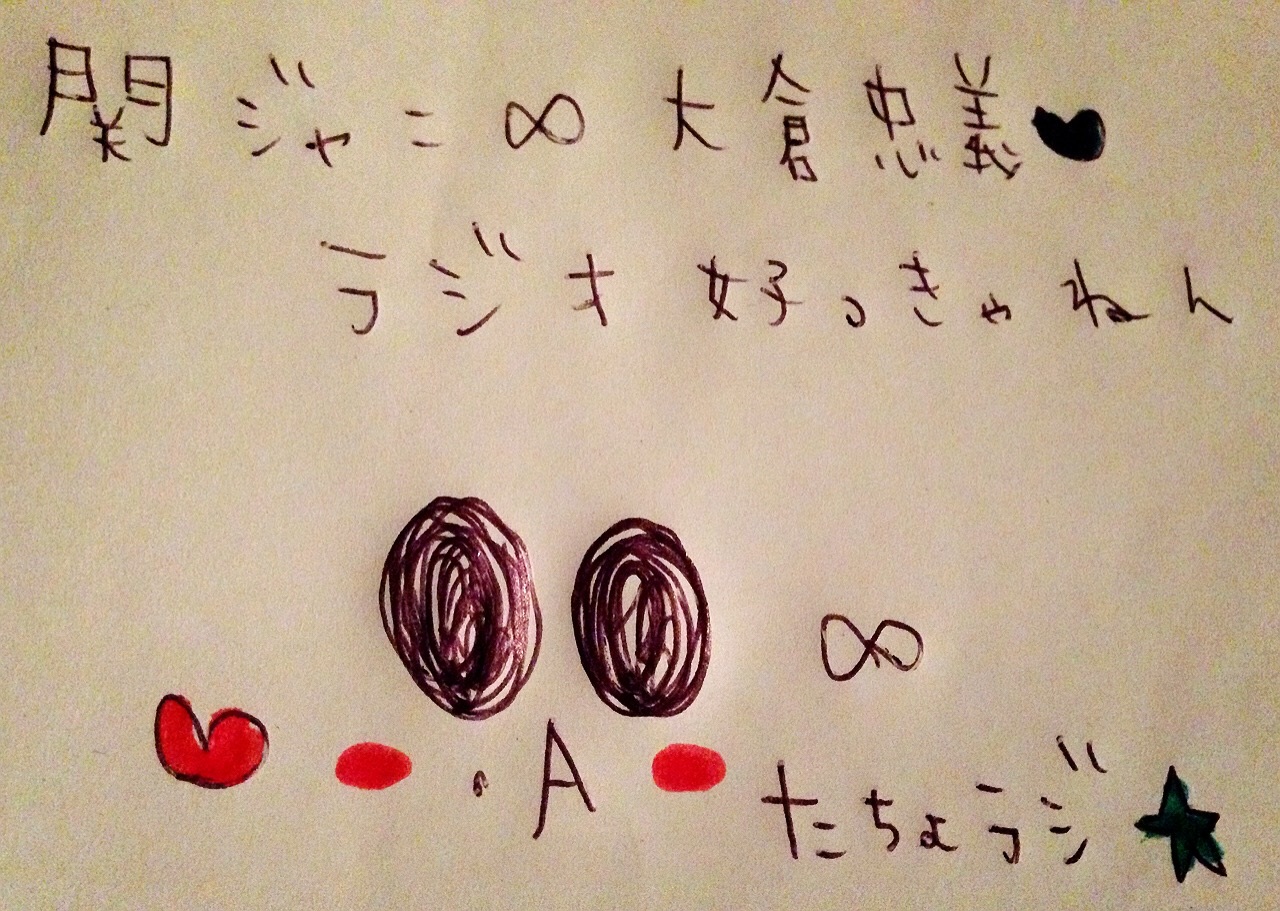 関ジャニ∞ 大倉忠義♥
ラジオ 好っきゃねん
∞
・A
たちょラジ★